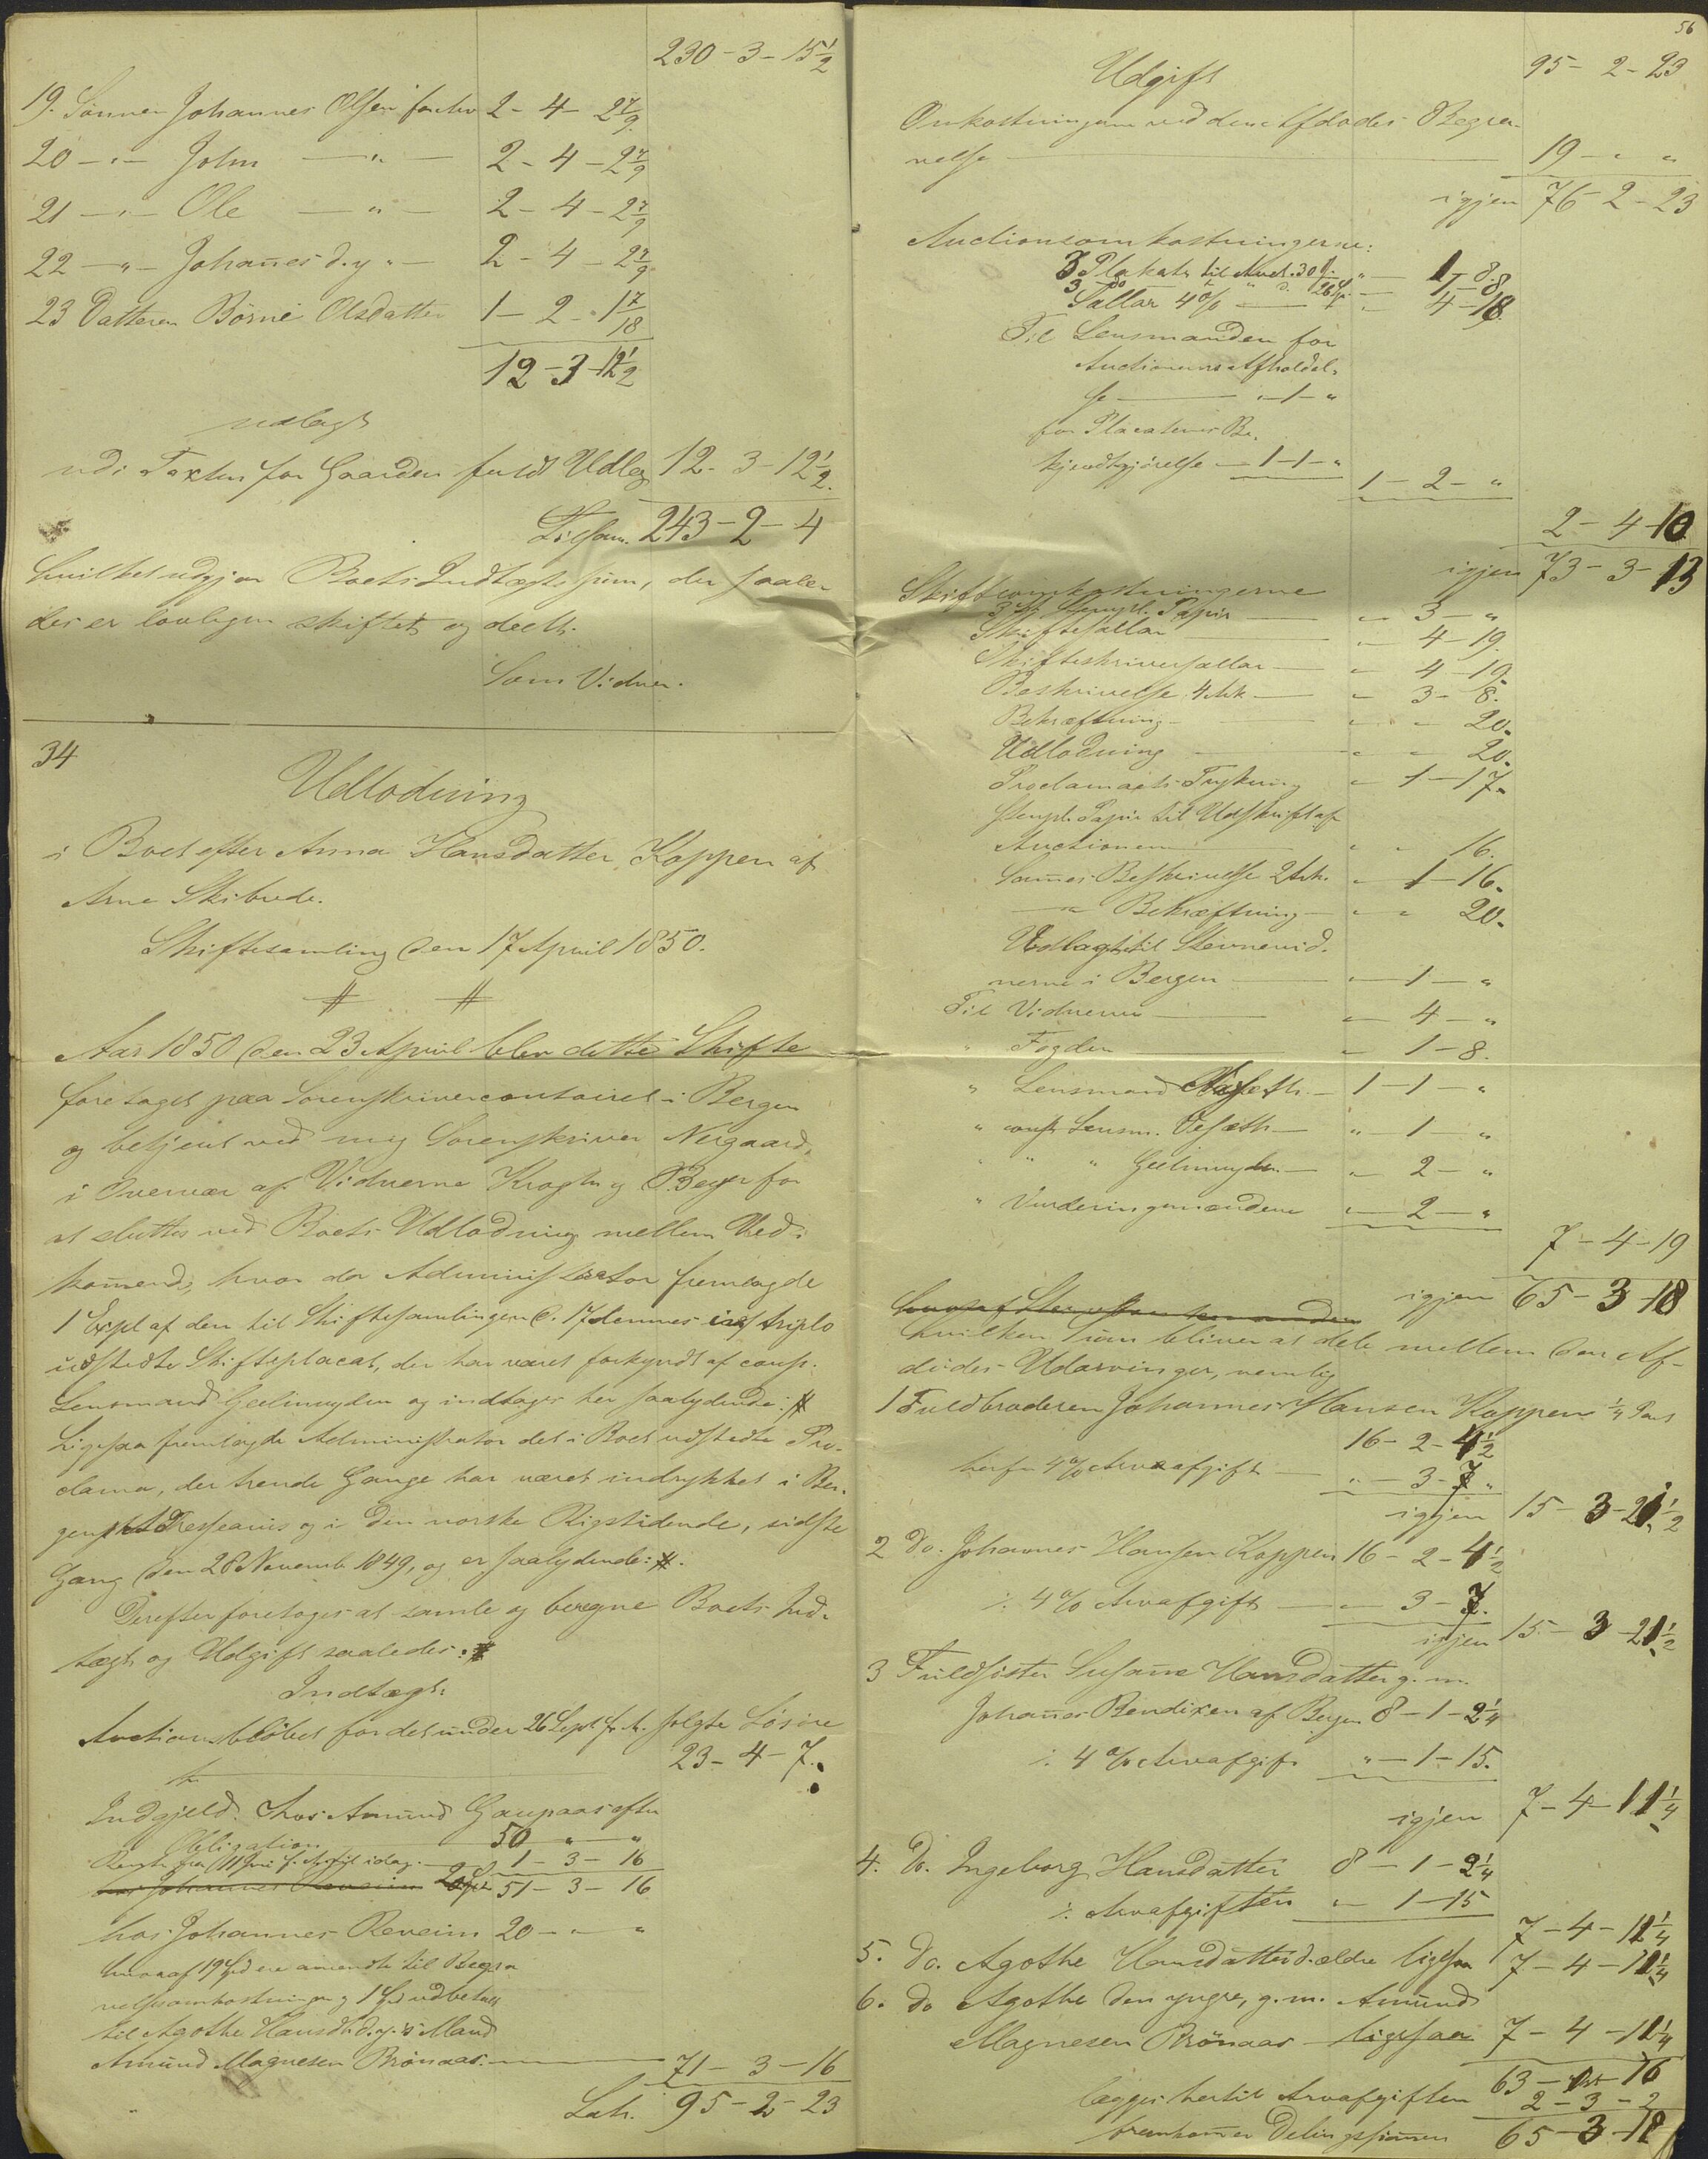 230-3-15½
19. Sønnen Johannes Olsen forlov 2-4-2 7/9
20 -"- John -"- 2-4-2 7/9
21 -"- Ole -"- 2-4-2 7/9
22 -"- Johañes d.y "- 2-4-2 7/9
23 Datteren Børné Olsdatter 1-2-1 7/18
12-3-12½
udlagt
udi Taxten for Gaarden fuldt Udlæg 12-3-12½
Tilsam. 243-2-4
hvilket udgjør Boets Indtægts sum, der saale-
des er lovligen skiftet og deelt.
Som Vidner.
34
Udlodning
i Boet efter Anna Hansdatter Koppen af
Arne Skibrede.
Skiftesamling den 17 April 1850.
# #
Aar 1850 den 23 April blev dette Skifte
foretaget paa Sorenskrivercontoiret i Bergen
og betjent ved mig Sorenskriver Nergaard,
i Overvær af Vidnerne Krogh og Beyer for
at sluttes ved Boets Udlodning mellem Ved-
kom̄ende, hvor da Administrator fremlagde
1 Expl af den til Skiftesamlingen d. 17 dennes in triplo
udstedte Skifteplacat, der har været forkyndt af const.
Lensmand Geelmuyden og indtages her saalydende: #
Ligesaa fremlagde Administrator det i Boet udstedte Pro-
clama, der trende Gange har været indrykket i Ber-
gens Adresseavis og i den norske Rigstidende, sidste
Gang den 28 Novemb 1849, og er saalydende: #.
Derefter foretoges at samle og beregne Boets Ind-
tægt og Udgift saaledes: #
Indtægt:
Auctionsbeløbet for det under 26 Sept f. A. solgte Løsøre
23-4-7.
Indgjeld. hos Amund Gaupaas efter
Obligation 50 " "
Renter fra 11 Juni f. A. til idag. 1-3-16
51-3-16
hos Johannes Reveim 20-"-"
hvoraf 19 Spd ere anvendte til Begra
velsesomkostninger og 1 Spd udbetalt
til Agothe Hansdtr d.y.'s Mand
Amund Magnesen Brönaas. 71-3-16
Lat. 95-2-23
56
Udgift 95-2-23
Omkostningerne ved den Afdødes Begra-
velse 19-"-"
igjen 76-2-23
Auctionsomkostningerne:
3 Plakater til Auct. 30 "- 1-8.
3 do " d. 26 Sp. - 1-8
Sallar 4% - " - 4-18
Til Lensmanden for
Auctionens Afholdel-
se "-1-"
for Placatens Be-
kjendtgjørelse 1-1-"
1-2-"
2-4-10
igjen 73-3-13
Skifteomkostningerne
3 St. Stempl. Papir " 3-"
Skiftesallar " 4-19.
Skifteskriversallar " 4-19.
Beskrivelse 4 Ark " 3-8.
Bekræftning " " 20.
Udlodning " " 20.
Proclamaets Trykning " 1-17.
Stempl. Papir til Udskrift af
Auctionen " " 16.
Sam̄es Beskrivelse 2 Ark. " 1-16.
-"- Bekræftning " " 20.
Udlagt til Stevnevid-
nerne i Bergen " 1-"
Til Vidnerne " 4-"
" Fogden " 1-8.
" Lensmand 1-1-"
" const Lensm. Vesæth "-1-"
" " " Geelmuyden " 2-"
" Vurderingsmændene " 2-"
7-4-19
igjen 65-3-18
hvilken Sum bliver at dele mellem den Af-
dødes Udarvinger, nemlig
1 Fuldbroderen Johannes Hansen Koppen ¼ Part
16-2-4½
herfra 4% Arveafgift "-3-7"
igjen 15-3-21½
2 Do. Johannes Hansen Koppen 16-2-4½
÷ 4% Arvafgift "-3-7.
igjen 15-3-21½
3 Fuldsøster Susan̄e Hansdatter g. m.
Johan̄es Bendixen af Bergen 8-1-2¼
÷ 4% Arvafgift "-1-15.
igjen 7-4-11¼
4. Do. Ingeborg Hansdatter 8-1-2¼
÷ Arvafgiften "-1-15
7-4-11¼
5. Do. Agothe Hansdatter d. ældre ligesaa 7-4-11¼
6. Do Agothe den yngre, g. m. Amund
Magnesen Brönaas - ligesaa 7-4-11¼
63- -16
lægges hertil Arvafgiften 2-3-2
fremkom̄er Delingssum̄en 65-3-18